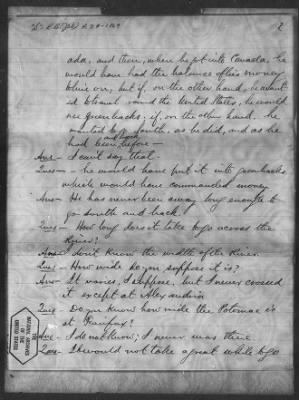 2
ada, and then, when he got into Canada, he
would have had the balance of his money
, but if, on the other hand, he want
ed to travel round the United States, he would
use Greenbacks; if, on the other hand, he
wanted to go South, as he did, and as he
had been before —
Ans — I can't say that.
Ques — he would have put it into Greenbacks,
which would have commanded money
Ans — He has never been away long enough to
go South and back.
Ques — How long does it take to go across the
River?
Ans — I don't know the width of the River.
Ques — How wide do you suppose it is?
Ans — It varies, I suppose, but I never crossed
it except at Alexandria
Ques — Do you know how wide the Potomac is
at Fairfax?
Ans — I do not know; I never was there
Ques — It would not take a great while to go
NATIONAL ARCHIVES
OF THE
UNITED STATES